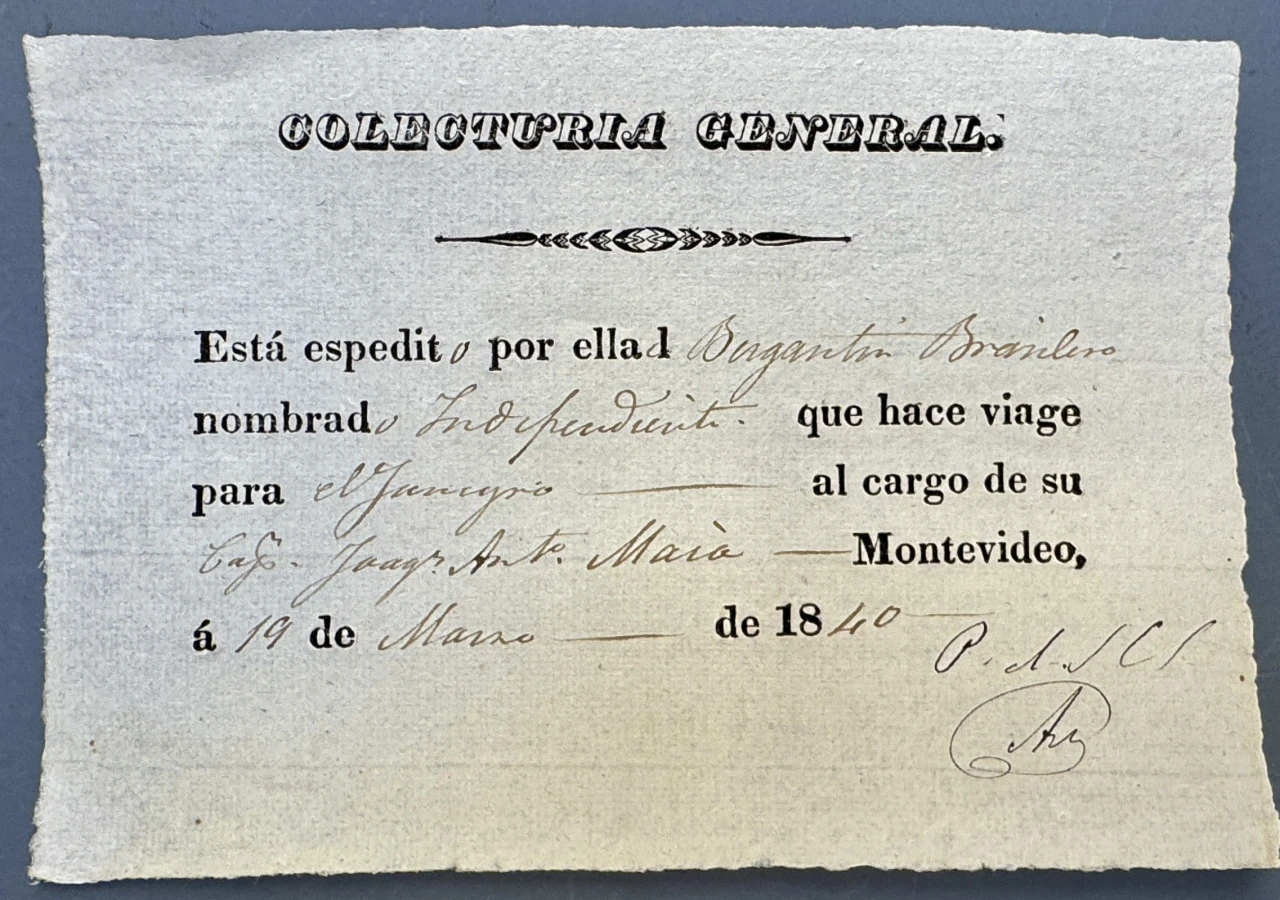 COLECTURIA GENERAL.
Está espedito por ella d Bergantin Brasilero
nombrado Independiente. que hace viage
para el Janeyro al cargo de su
Capn. Joaqn. Anto. Maia Montevideo,
á 19 de Marzo de 1840
P. d. S C